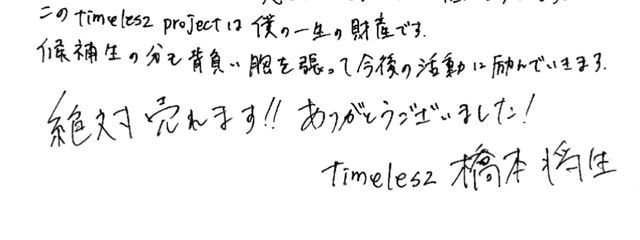 このtimelesz projectは僕の一生の財産です。
候補生の分も背負い胸を張って今後の活動に励んでいきます。
絶対売れます!! ありがとうございました!
timelesz 橋本将生